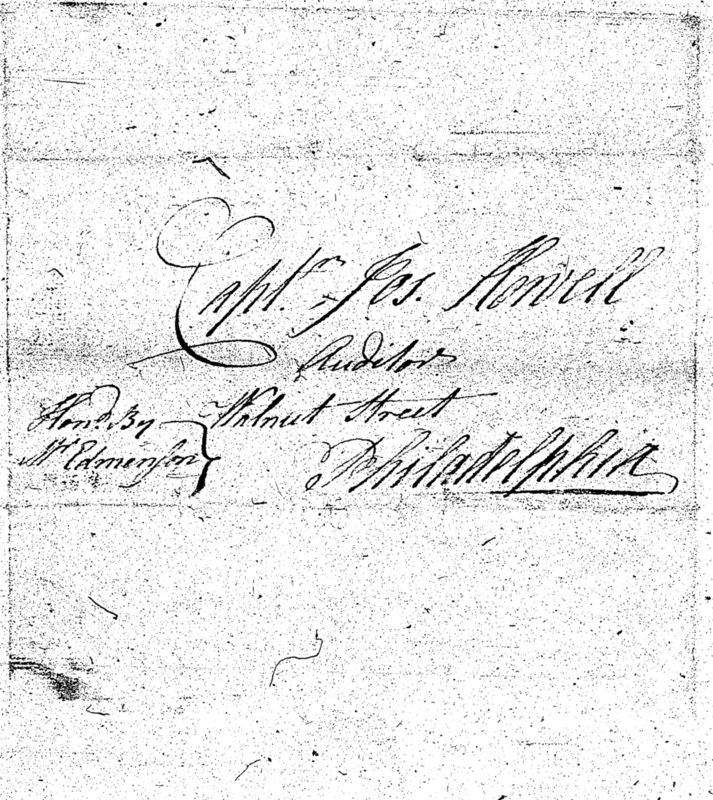 Captn. Jos. Howell
Auditor
Walnut Street
Philadelphia
Hond. By
Mr. Edmenson